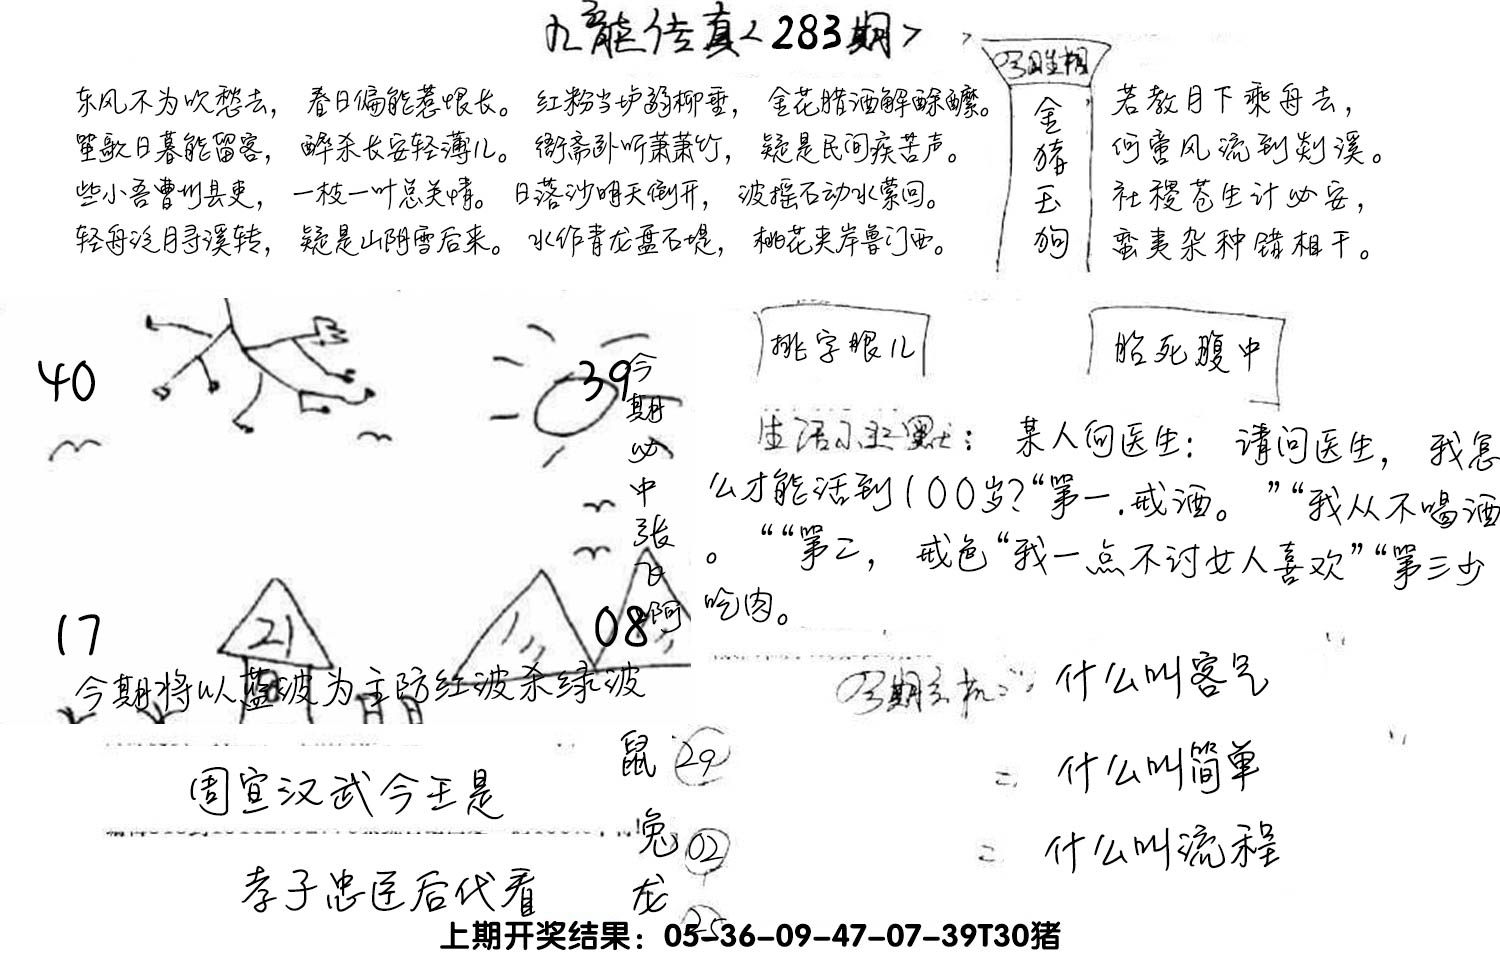 九龙传真<283期>
东风不为吹愁去， 春日偏能惹恨长。 红粉当垆弱柳垂， 金花腊酒解酴醾。
笙歌日暮能留客， 醉杀长安轻薄儿。 衙斋卧听萧萧竹， 疑是民间疾苦声。
些小吾曹州县吏， 一枝一叶总关情。 日落沙明天倒开， 波摇石动水萦回。
轻舟泛月寻溪转， 疑是山阴雪后来。 水作青龙盘石堤， 桃花夹岸鲁门西。
金猪玉狗
若教月下乘舟去，
何啻风流到剡溪。
社稷苍生计必安，
蛮夷杂种错相干。
40
39
17
21
08
今期必中张飞阿
今期将以蓝波为主防红波杀绿波
挑字眼儿
胎死腹中
生活小幽默： 某人问医生： 请问医生， 我怎
么才能活到100岁？“第一.戒酒。 ”“我从不喝酒
。 ““第二， 戒色“我一点不讨女人喜欢”“第三少
吃肉。
什么叫客气
= 什么叫简单
= 什么叫流程
周宣汉武今王是
孝子忠臣后代看
鼠 29
兔 02
龙 25
上期开奖结果：05-36-09-47-07-39T30猪